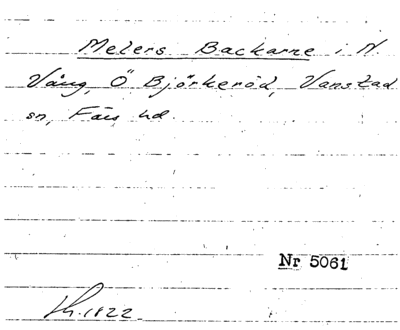 Melers Backarne i N.
Vång, Ö Björkeröd, Vanstad
sn, Färs hd.
Nr 5061
1822